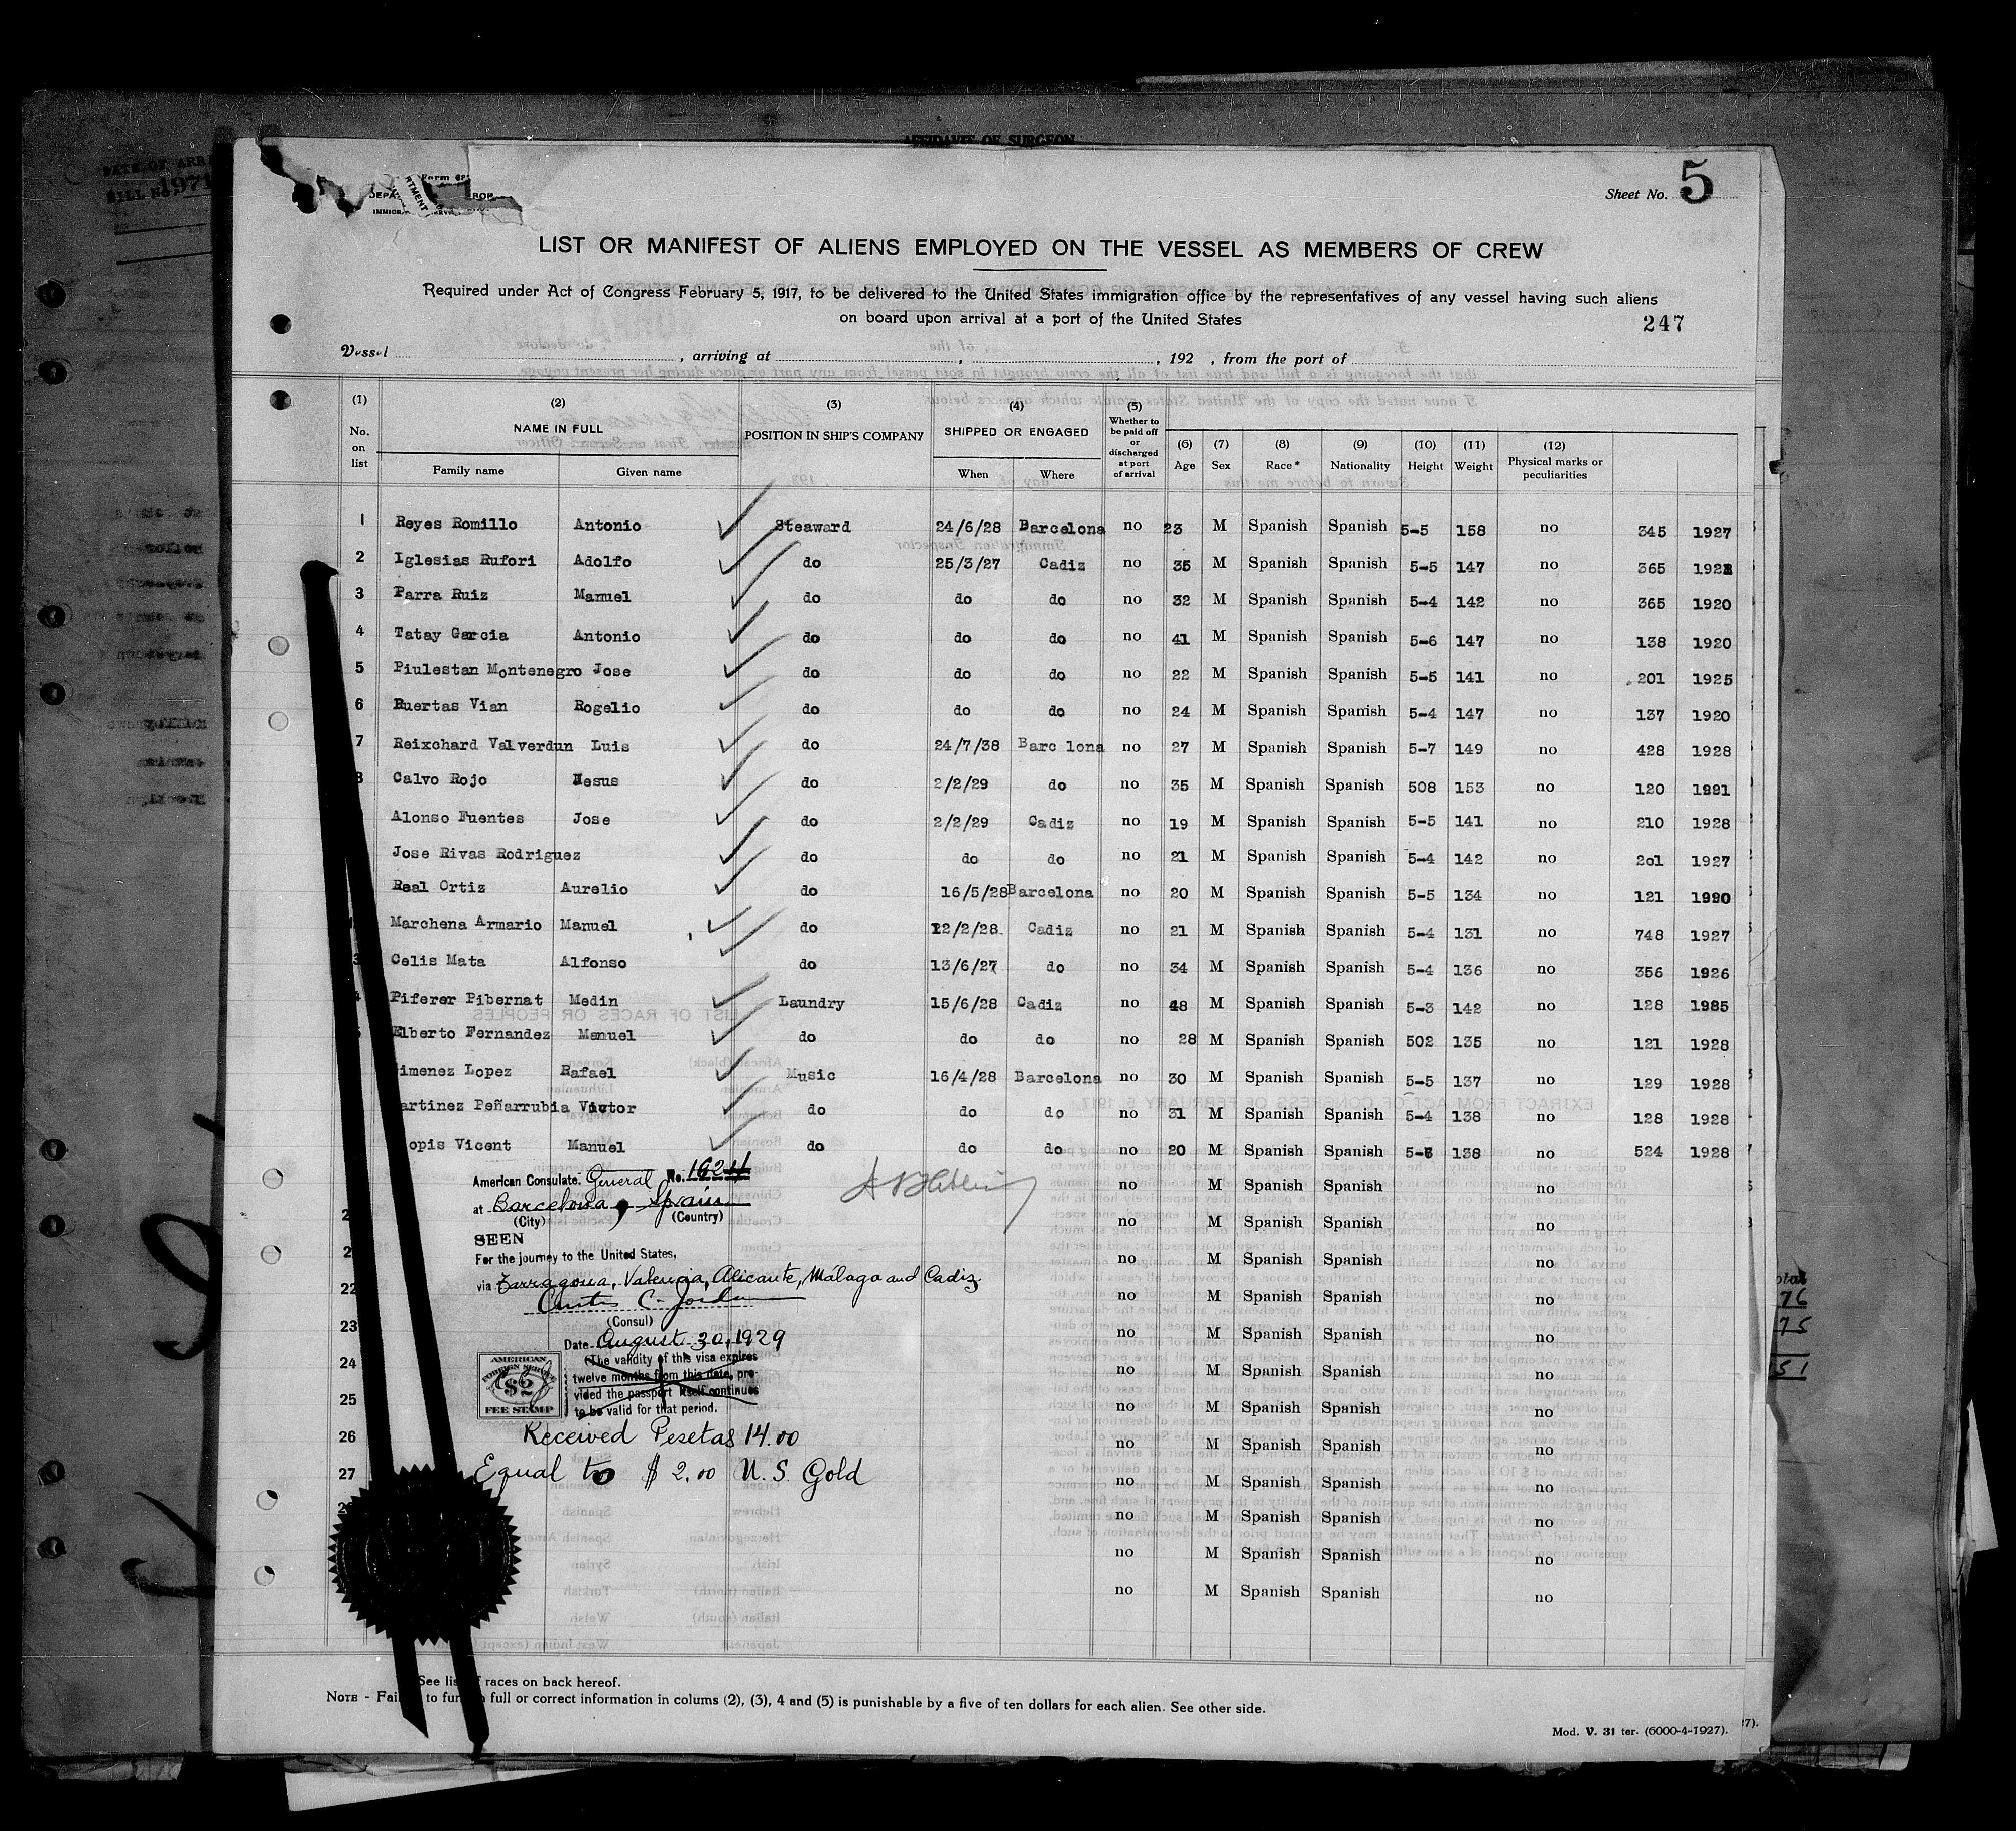 AFFIDAVIT OF SURGEON
DATE OF ARRI
BILL NO. 1971
Form 68
DEPA RTMENT BOR
IMMIGRA SERVI
Sheet No. 5
LIST OR MANIFEST OF ALIENS EMPLOYED ON THE VESSEL AS MEMBERS OF CREW
Required under Act of Congress February 5, 1917, to be delivered to the United States immigration office by the representatives of any vessel having such aliens
on board upon arrival at a port of the United States
247
Vessel , arriving at , , 192 , from the port of
(1) No. on list (2) NAME IN FULL Family name Given name (3) POSITION IN SHIP'S COMPANY (4) SHIPPED OR ENGAGED When Where (5) Whether to be paid off or discharged at port of arrival (6) Age (7) Sex (8) Race* (9) Nationality (10) Height (11) Weight (12) Physical marks or peculiarities
1 Reyes Romillo Antonio Steaward 24/6/28 Barcelona no 23 M Spanish Spanish 5-5 158 no 345 1927
2 Iglesias Rufori Adolfo do 25/3/27 Cadiz no 35 M Spanish Spanish 5-5 147 no 365 192
3 Parra Ruiz Manuel do do do no 32 M Spanish Spanish 5-4 142 no 365 1920
4 Tatay Garcia Antonio do do do no 41 M Spanish Spanish 5-6 147 no 138 1920
5 Piulestan Montenegro Jose do do do no 22 M Spanish Spanish 5-5 141 no 201 1925
6 Ruertas Vian Rogelio do do do no 24 M Spanish Spanish 5-4 147 no 137 1920
7 Reixchard Valverdun Luis do 24/7/38 Barc lona no 27 M Spanish Spanish 5-7 149 no 428 1928
8 Calvo Rojo Jesus do 2/2/29 do no 35 M Spanish Spanish 508 153 no 120 1991
Alonso Fuentes Jose do 2/2/29 Cadiz no 19 M Spanish Spanish 5-5 141 no 210 1928
Jose Rivas Rodriguez do do do no 21 M Spanish Spanish 5-4 142 no 2o1 1927
Real Ortiz Aurelio do 16/5/28 Barcelona no 20 M Spanish Spanish 5-5 134 no 121 1990
Marchena Armario Manuel do 12/2/28 Cadiz no 21 M Spanish Spanish 5-4 131 no 748 1927
3 Celis Mata Alfonso do 13/6/27 do no 34 M Spanish Spanish 5-4 136 no 356 1926
4 Piferer Pibernat Medin Laundry 15/6/28 Cadiz no 48 M Spanish Spanish 5-3 142 no 128 1985
5 Elberto Fernandez Manuel do do do no 28 M Spanish Spanish 502 135 no 121 1928
imenez Lopez Rafael Music 16/4/28 Barcelona no 30 M Spanish Spanish 5-5 137 no 129 1928
artinez Peñarrubia Victor do do do no 31 M Spanish Spanish 5-4 138 no 128 1928
opis Vicent Manuel do do do no 20 M Spanish Spanish 138 no 524 1928
no M Spanish Spanish no
2 no M Spanish Spanish no
2 no M Spanish Spanish no
22 no M Spanish Spanish no
23 no M Spanish Spanish no
24 no M Spanish Spanish no
25 no M Spanish Spanish no
26 no M Spanish Spanish no
27 no M Spanish Spanish no
2 no M Spanish Spanish no
no M Spanish Spanish no
no M Spanish Spanish no
American Consulate. General No. 1624
at Barcelona, Spain
(City) (Country)
SEEN
For the journey to the United States,
via Tarragona, Valencia, Alicante, Málaga and Cadiz.
Curtis C. Jordan
(Consul)
Date August 30, 1929
(The validity of this visa expires
twelve months from this date, pro-
vided the passport itself continues
to be valid for that period.
AMERICAN
FOREIGN SERVICE
$2
FEE STAMP
Received Pesetas 14.00
Equal to $ 2.00 U.S. Gold
otal
76
75
51
See list f races on back hereof.
NOTE - Fai to fur full or correct information in colums (2), (3), 4 and (5) is punishable by a five of ten dollars for each alien. See other side.
Mod. V. 31 ter. (6000-4-1927).
27).